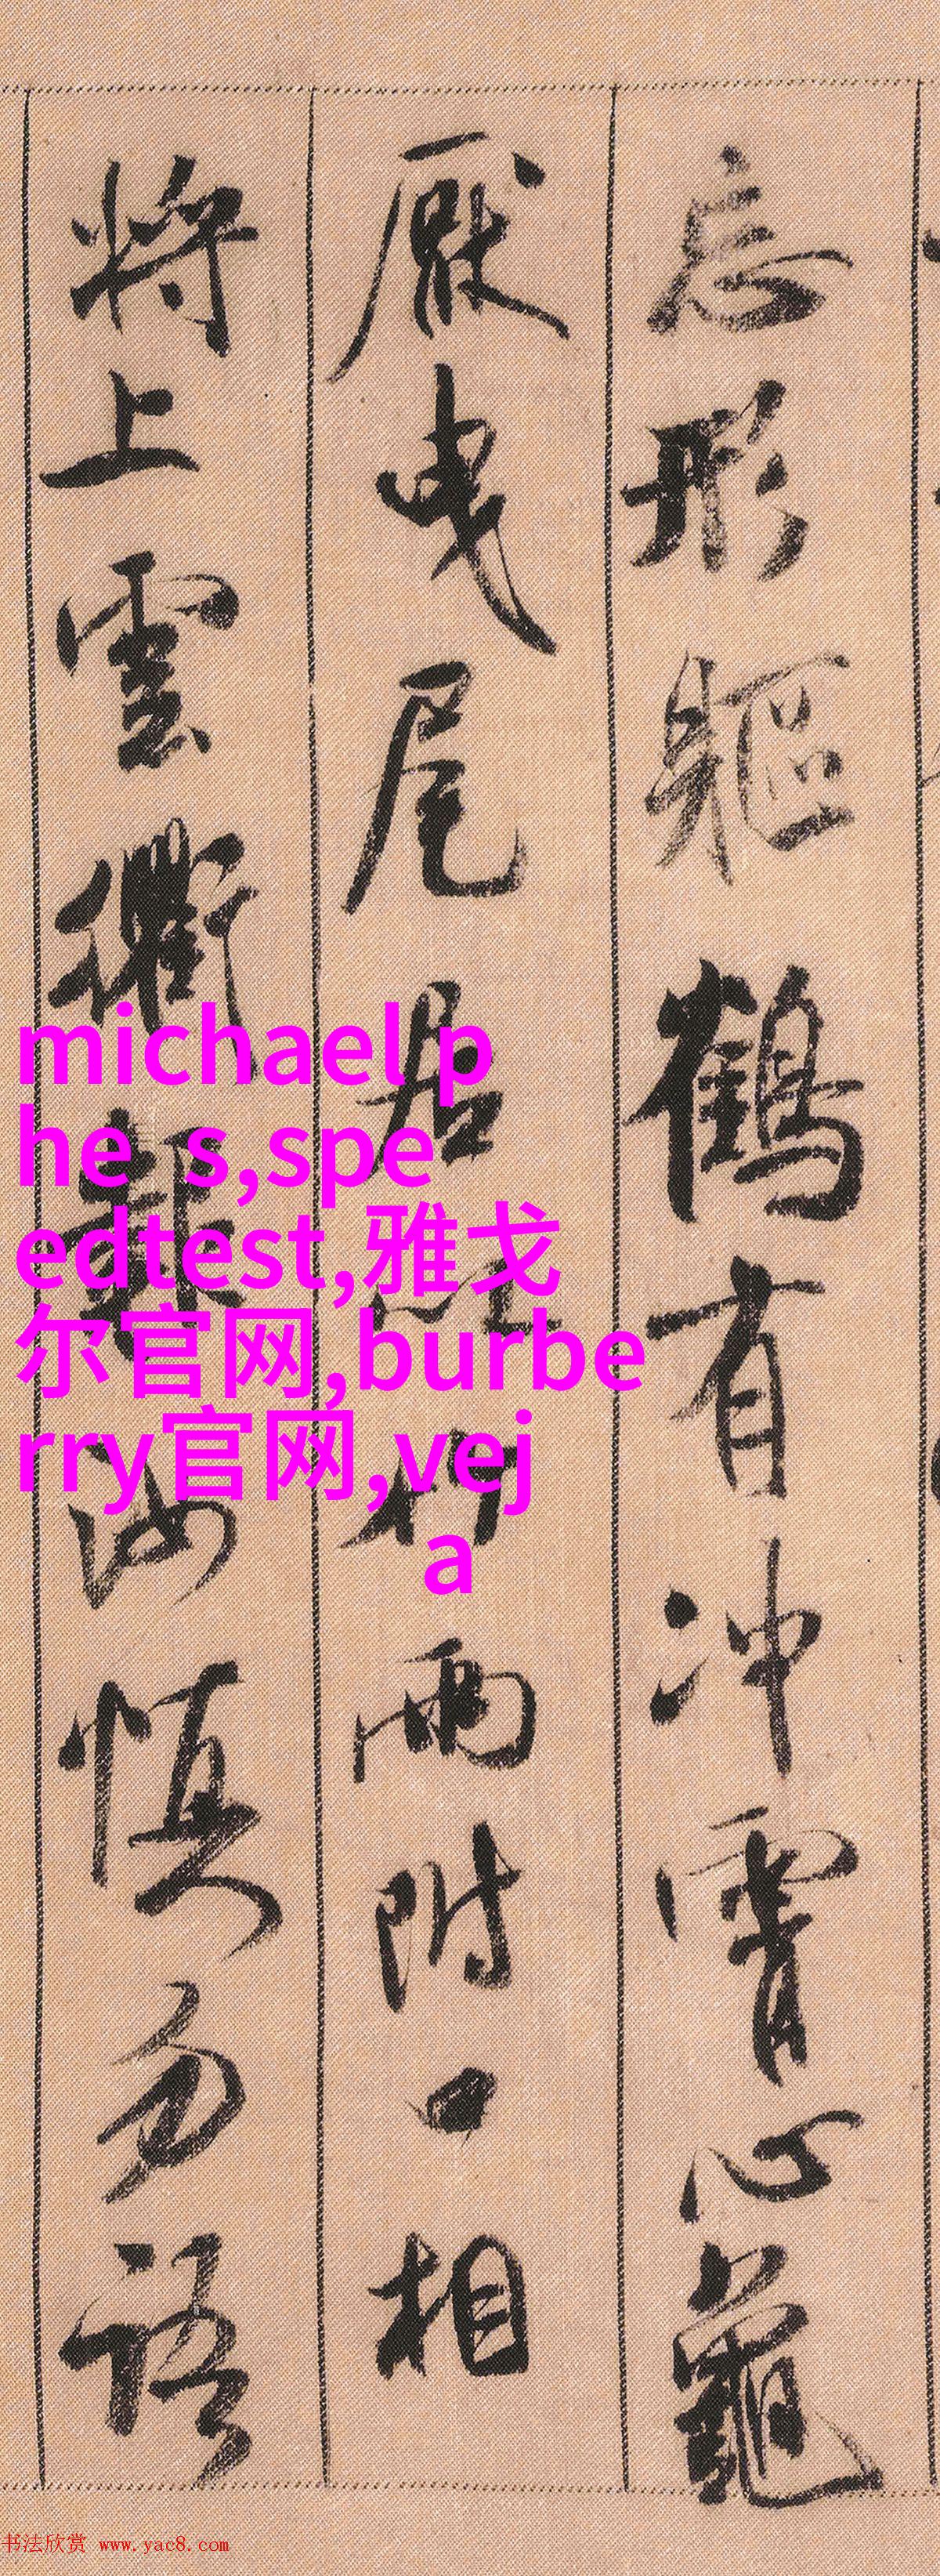 忘形軀鶴有冲霄心龜
厭曳尾居以竹兩附口相
將上雲衢報汝慎勿語
michael p
he s,spe
edtest,雅戈
尔官网,burbe
rry官网,vej
a
书法欣赏 www.yac8.com